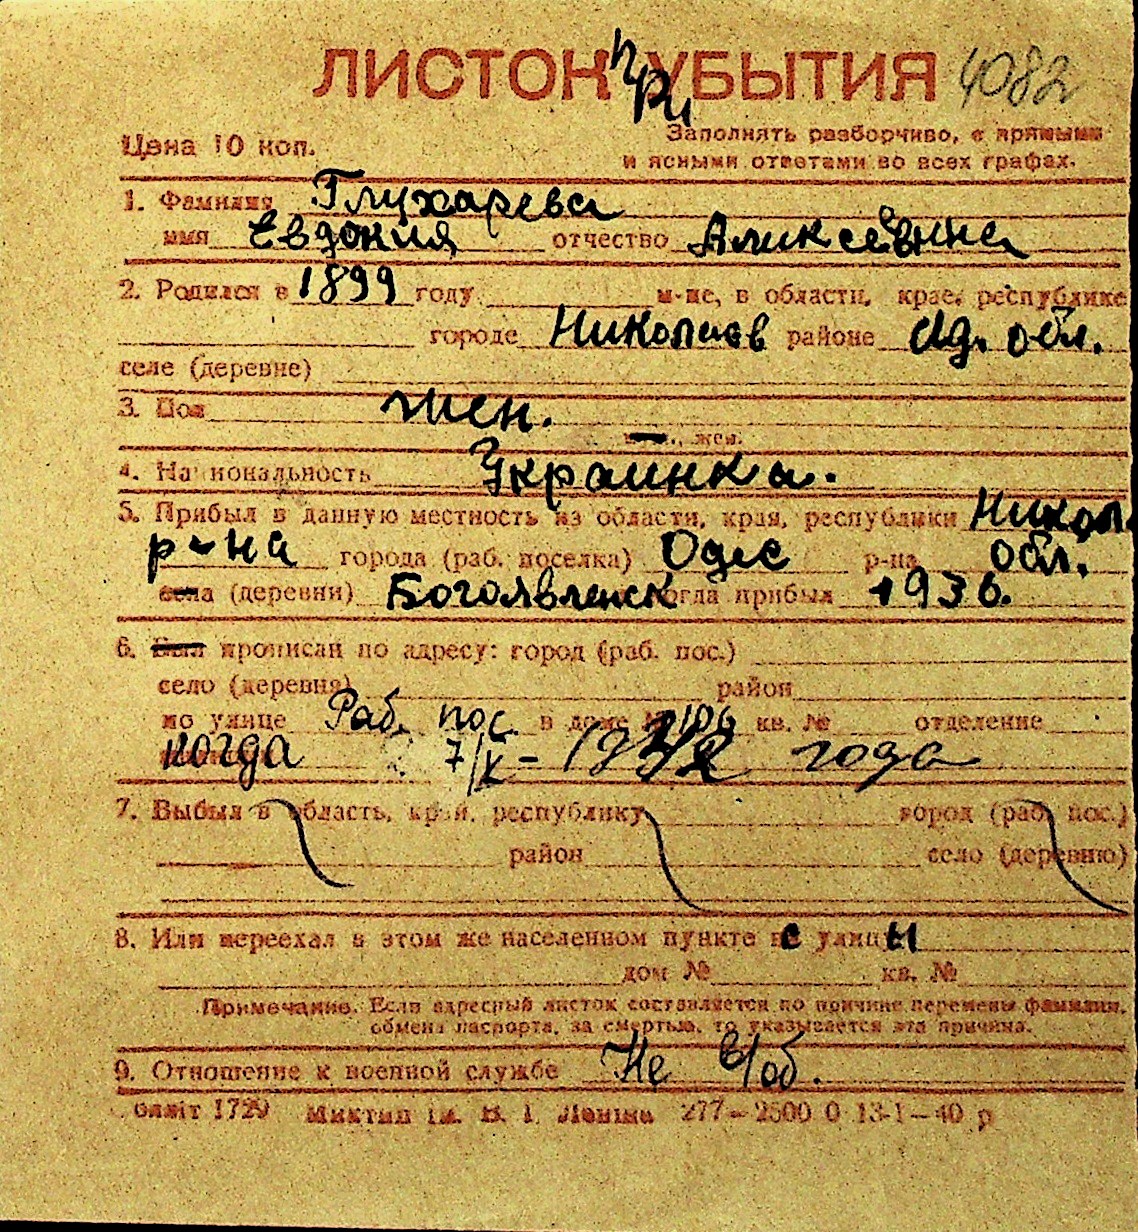 ЛИСТОК ПРИУБЫТИЯ 4082
Цена 10 коп.
Заполнять разборчиво, с прямыми
и ясными ответами во всех графах.
1. Фамилия Глухарева
имя Евдокия отчество Аликсевна
2. Родился в 1899 году м-це, в области, крае, республике
городе Николаев районе Од. обл.
селе (деревне)
3. Пол жен.
жен.
4. Национальность Украинка.
5. Прибыл в данную местность из области, края, республики Никол.
р-на города (раб. поселка) Одес р-на обл.
села (деревни) Богоявленск когда прибыл 1936.
6. Был прописан по адресу: город (раб. пос.)
село (деревня) район
по улице Раб. пос. в доме № кв. № отделение
когда 7/X - года
7. Выбыл в область, край, республику город (раб. пос.)
район село (деревню)
8. Или переехал в этом же населенном пункте с улицы
дом № кв. №
Примечание. Если адресный листок составляется по причине перемены фамилии,
обмена паспорта, за смертью, то указывается эта причина.
9. Отношение к военной службе Не в/об.
1729 Миктип ім. В. І. Леніна 277-2500 0 13-1-40 р